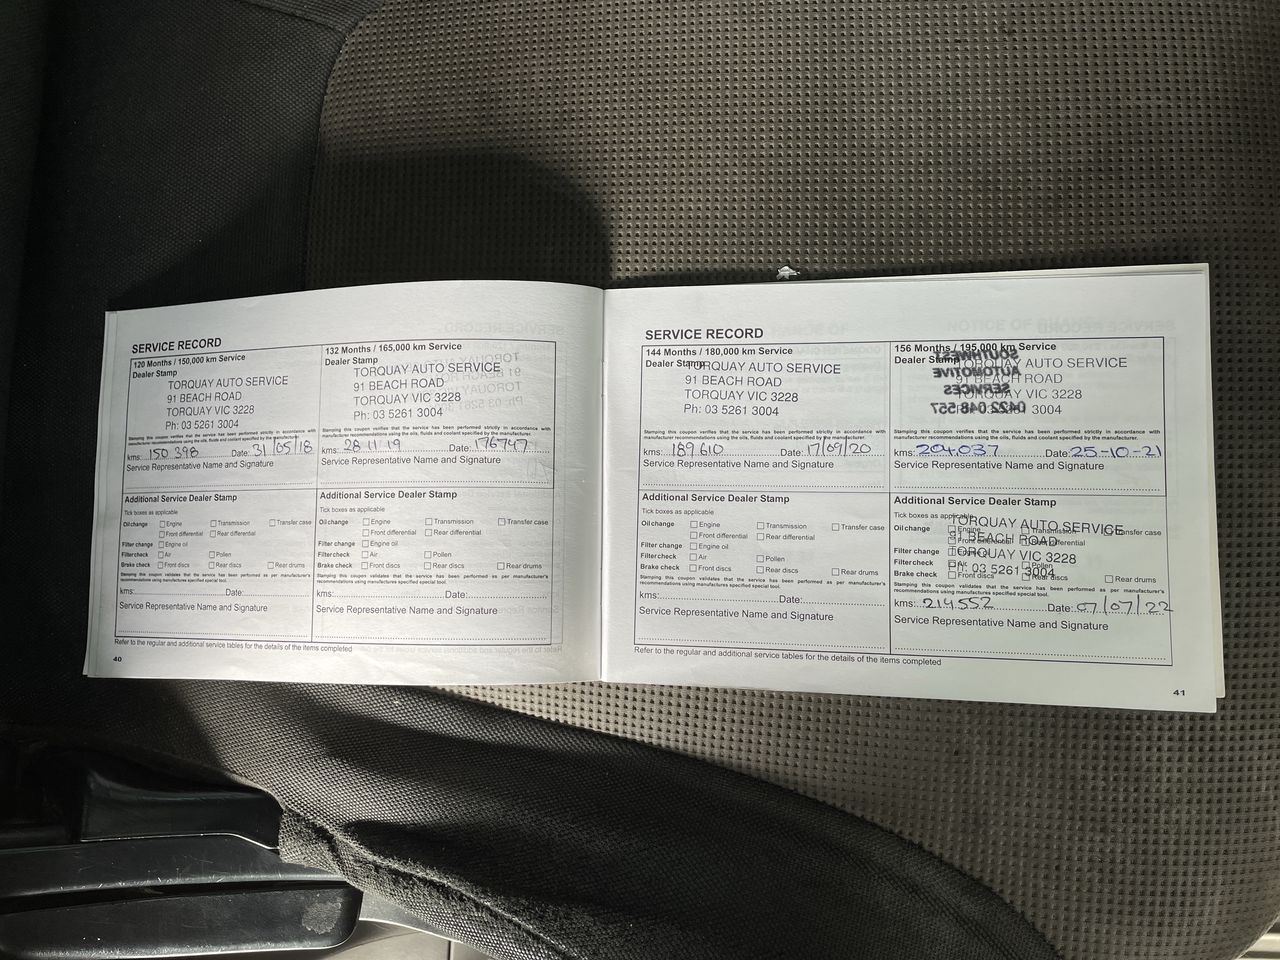 SERVICE RECORD
120 Months / 150,000 km Service
Dealer Stamp
TORQUAY AUTO SERVICE
91 BEACH ROAD
TORQUAY VIC 3228
Ph: 03 5261 3004
Stamping this coupon verifies that the service has been performed strictly in accordance with
manufacturer recommendations using the oils, fluids and coolant specified by the manufacturer.
kms: 150 398 Date: 31/05/18
Service Representative Name and Signature
Additional Service Dealer Stamp
Tick boxes as applicable
Oil change Engine Transmission Transfer case
Front differential Rear differential
Filter change Engine oil
Filter check Air Pollen
Brake check Front discs Rear discs Rear drums
Stamping this coupon validates that the service has been performed as per manufacturer's
recommendations using manufactures specified special tool.
kms: Date:
Service Representative Name and Signature
132 Months / 165,000 km Service
Dealer Stamp
TORQUAY AUTO SERVICE
91 BEACH ROAD
TORQUAY VIC 3228
Ph: 03 5261 3004
Stamping this coupon verifies that the service has been performed strictly in accordance with
manufacturer recommendations using the oils, fluids and coolant specified by the manufacturer.
kms: 28 11 19 Date: 176747
Service Representative Name and Signature
Additional Service Dealer Stamp
Tick boxes as applicable
Oil change Engine Transmission Transfer case
Front differential Rear differential
Filter change Engine oil
Filter check Air Pollen
Brake check Front discs Rear discs Rear drums
Stamping this coupon validates that the service has been performed as per manufacturer's
recommendations using manufactures specified special tool.
kms: Date:
Service Representative Name and Signature
Refer to the regular and additional service tables for the details of the items completed
40
SERVICE RECORD
144 Months / 180,000 km Service
Dealer Stamp
TORQUAY AUTO SERVICE
91 BEACH ROAD
TORQUAY VIC 3228
Ph: 03 5261 3004
Stamping this coupon verifies that the service has been performed strictly in accordance with
manufacturer recommendations using the oils, fluids and coolant specified by the manufacturer.
kms: 189 610 Date: 17/09/20
Service Representative Name and Signature
Additional Service Dealer Stamp
Tick boxes as applicable
Oil change Engine Transmission Transfer case
Front differential Rear differential
Filter change Engine oil
Filter check Air Pollen
Brake check Front discs Rear discs Rear drums
Stamping this coupon validates that the service has been performed as per manufacturer's
recommendations using manufactures specified special tool.
kms: Date:
Service Representative Name and Signature
156 Months / 195,000 km Service
Dealer Stamp
TORQUAY AUTO SERVICE
91 BEACH ROAD
TORQUAY VIC 3228
3004
SOUTHWEST
AUTOMOTIVE
SERVICES
0422 048 557
Stamping this coupon verifies that the service has been performed strictly in accordance with
manufacturer recommendations using the oils, fluids and coolant specified by the manufacturer.
kms: 204,037 Date: 25-10-21
Service Representative Name and Signature
Additional Service Dealer Stamp
Tick boxes as applicable
TORQUAY AUTO SERVICE
91 BEACH ROAD
TORQUAY VIC 3228
03 5261 3004
Oil change Engine Transmission Transfer case
Front differential Rear differential
Filter change Engine oil
Filter check Air Pollen
Brake check Front discs Rear discs Rear drums
Stamping this coupon validates that the service has been performed as per manufacturer's
recommendations using manufactures specified special tool.
kms: 214552 Date: 07/07/22
Service Representative Name and Signature
Refer to the regular and additional service tables for the details of the items completed
41